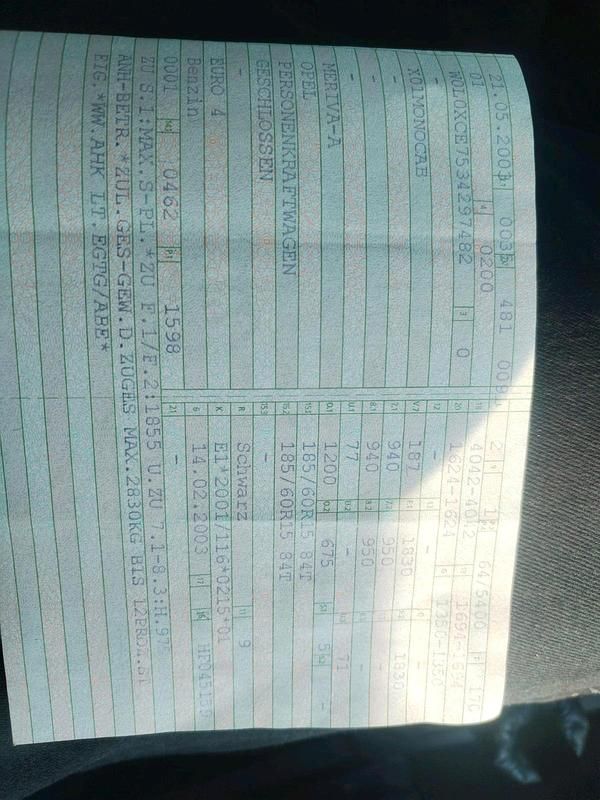 21.05.2003 003 481 00
01 0200
W0L0XCE7534297482 0
X01MONOCAB
-
-
-
MERIVA-A
OPEL
PERSONENKRAFTWAGEN
GESCHLOSSEN
-
EURO 4
Benzin
0001 0462 1598
2 64/5400 170
4042-4042 1694-1694
1624-1624 1350-1350
-
187 1830 1830
940 950 -
940 950 -
77 - 71
1200 675 5
185/60R15 84T
185/60R15 84T
-
Schwarz 9
E1*2001/116*0215*01
14.02.2003
-
ZU S.1:MAX.S-PL.*ZU F.1/F.2:1855 U.ZU 7.1-8.3:H.97
ANH-BETR.*ZUL.GES-GEW.D.ZUGES MAX.2830KG BIS 12%
EIG.*WW.AHK LT.EGTG/ABE*